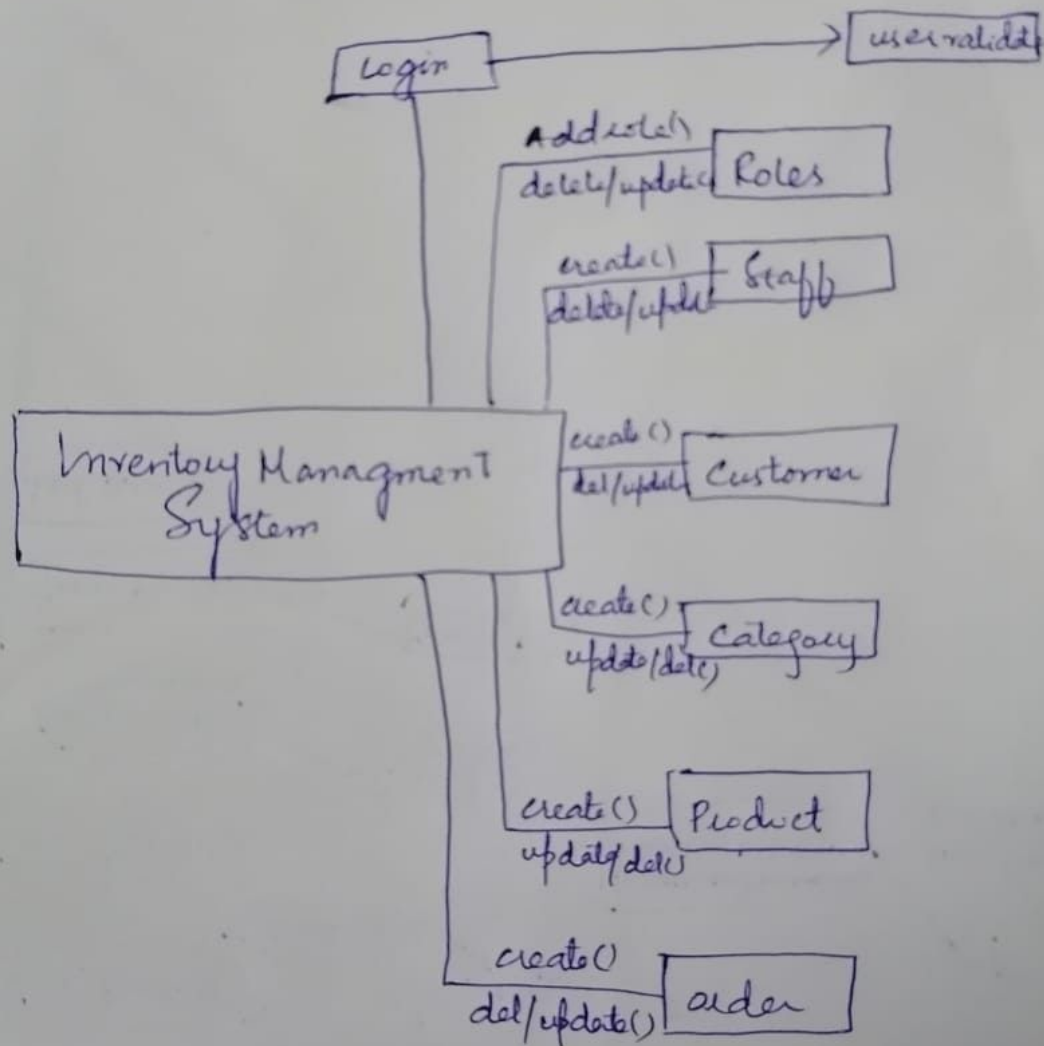 Login
uservalidate
Addrole()
delete/update(
Roles
create()
delete/upda
Staff
Inventory Managment
System
create()
del/updat
Customer
create()
update/del()
Category
create()
update/del()
Product
create()
del/update()
order